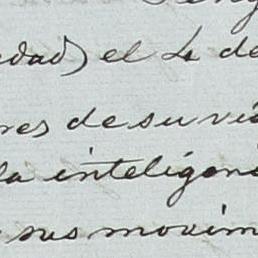 edad) el 4 de
res de su vi
la inteligen
sus movim